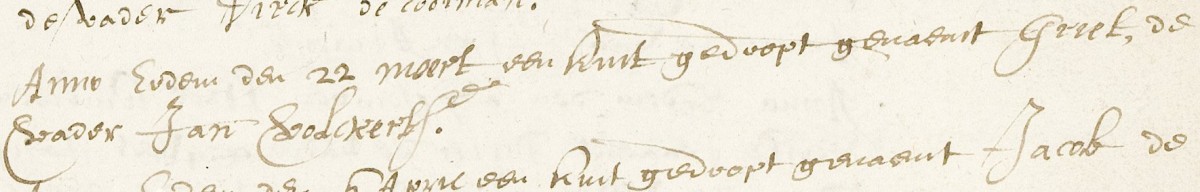 de vader Dirck de coorman.
Anno Eodem den 22 meert een kint gedoopt genaemt Griet, de
vader Jan Volckerts.
Eodem den 6 April een kint gedoopt genaemt Jacob de